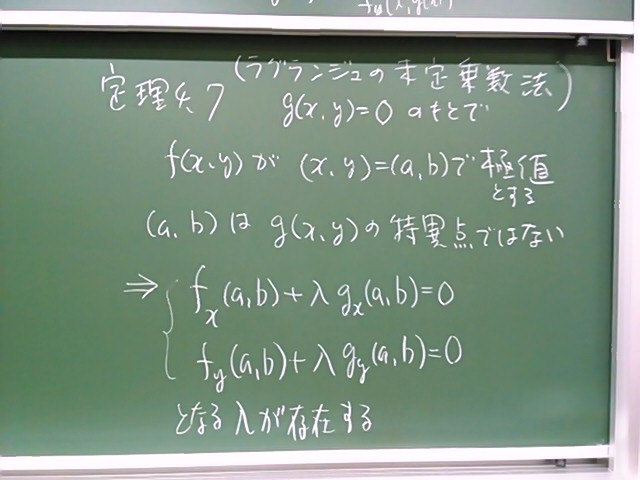 定理4.7 (ラグランジュの未定乗数法)
g(x,y)=0 のもとで
f(x,y)が (x,y)=(a,b)で極値
とする
(a,b)は g(x,y)の特異点ではない
⇒ { fx(a,b)+λgx(a,b)=0
fy(a,b)+λgy(a,b)=0
となるλが存在する